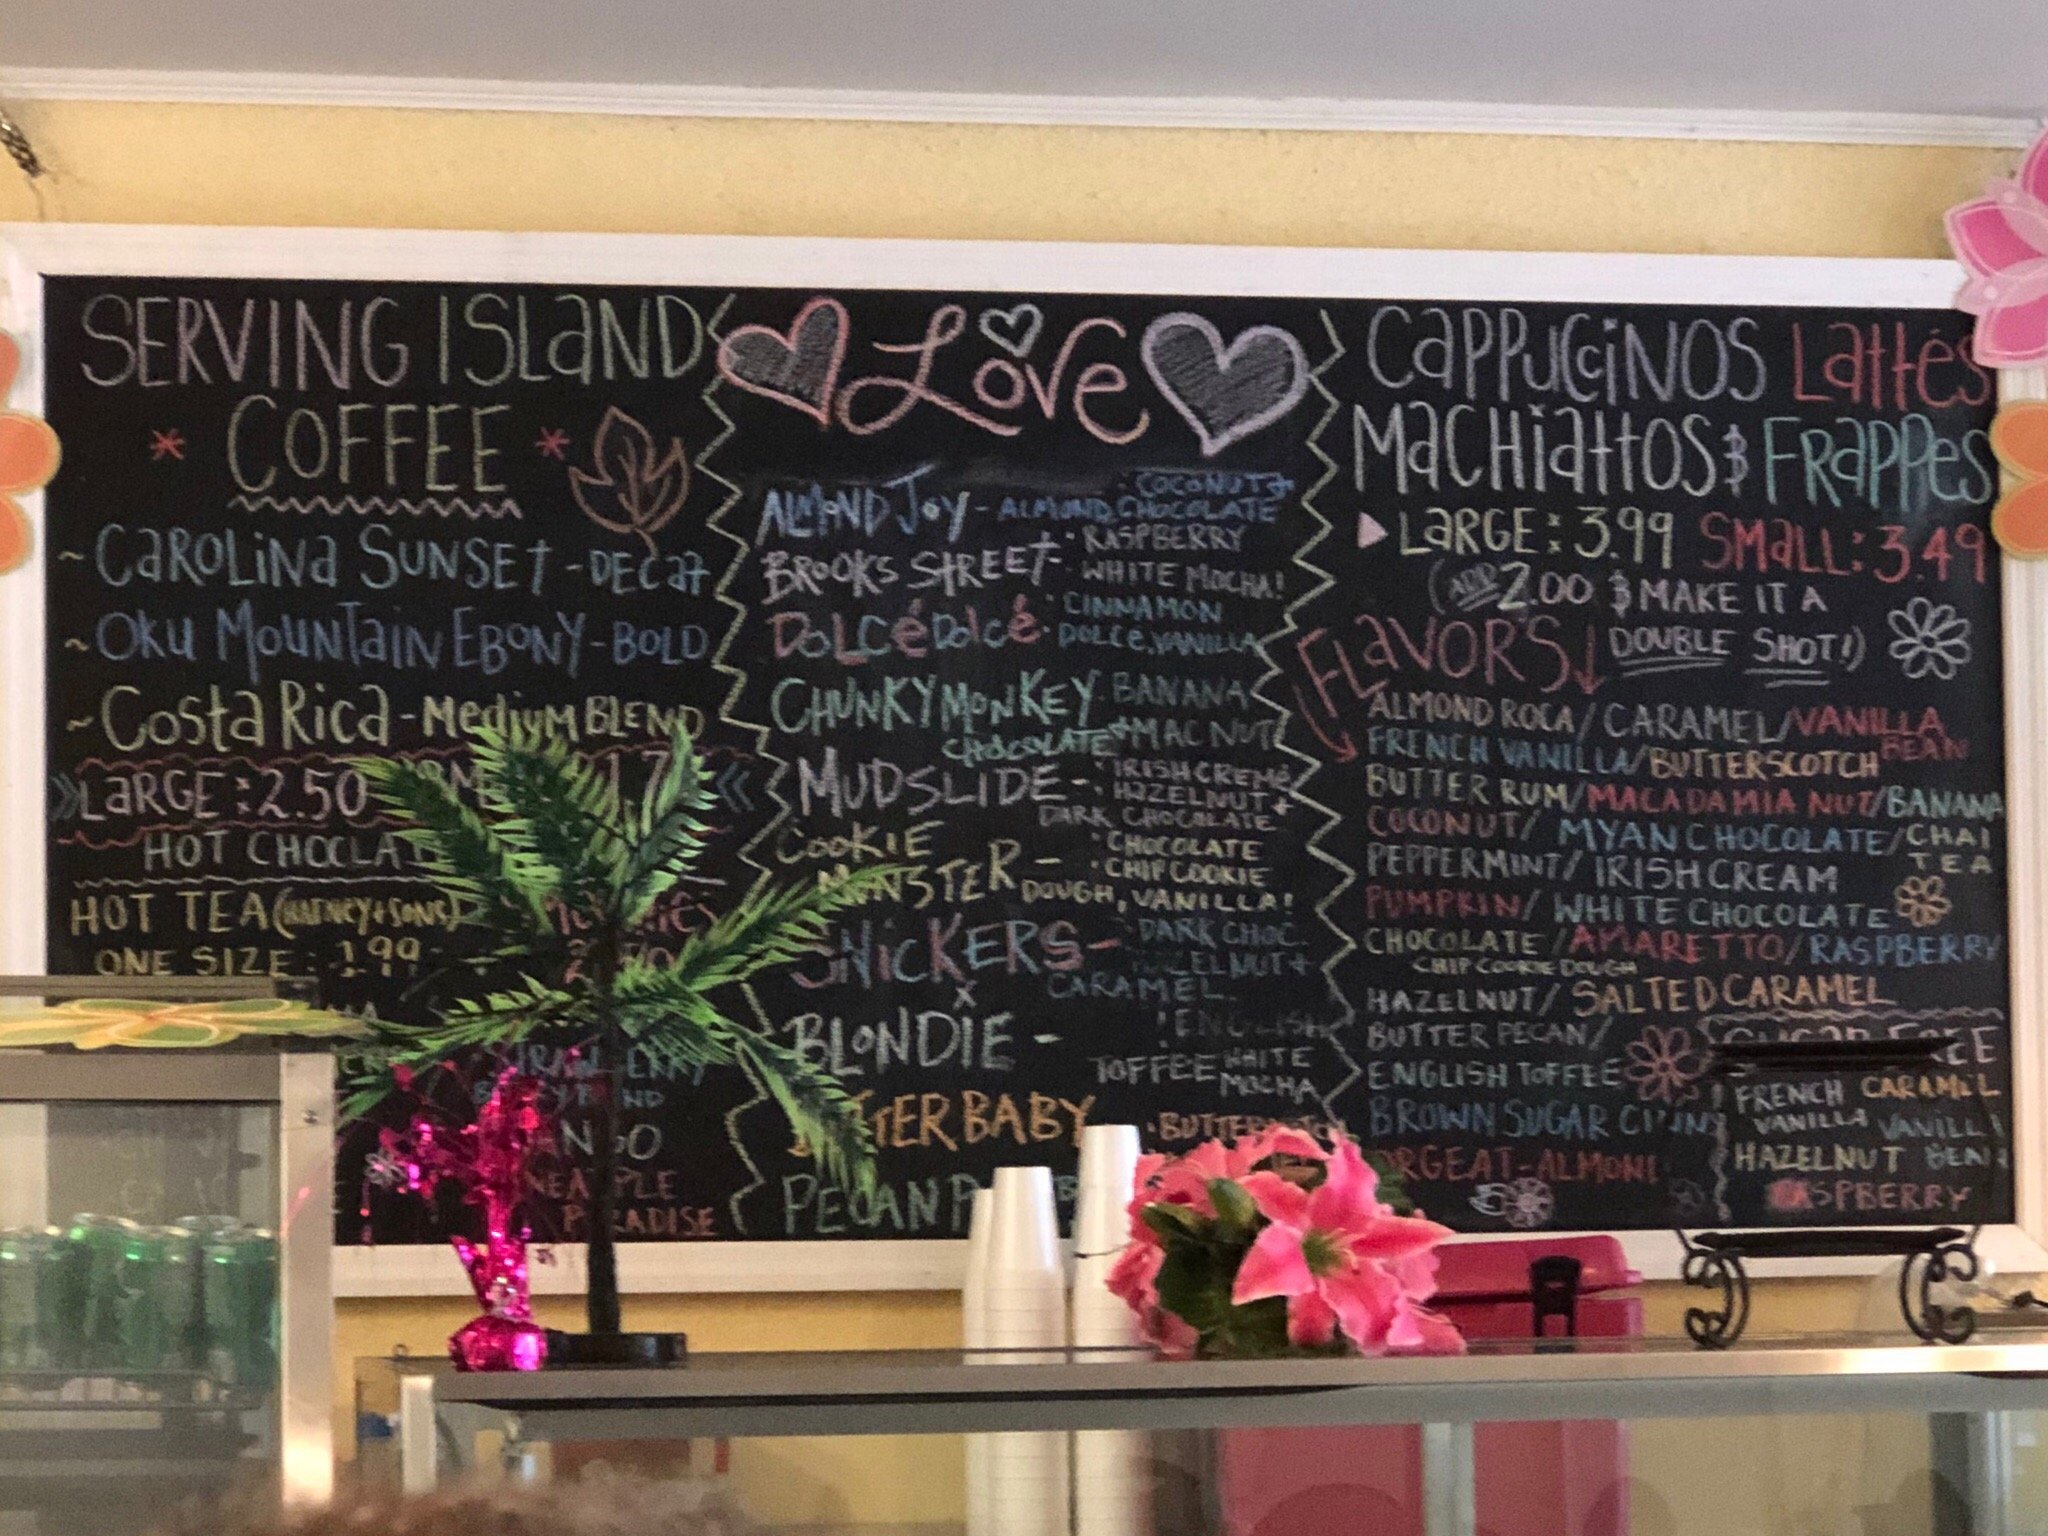 SERVING ISLAND
COFFEE
~ CAROLINA SUNSET - DECAF
~ OKU MOUNTAIN EBONY - BOLD
~ COSTA RICA - MEDIUM BLEND
LARGE : 2.50
HOT CHOCLA
HOT TEA (HARNEY + SONS)
ONE SIZE : 1.99
PARADISE
Love
ALMOND JOY - ALMOND, COCONUT + CHOCOLATE
BROOKS STREET - RASPBERRY WHITE MOCHA!
DOLCé DOLCé · CINNAMON DOLCE, VANILLA
CHUNKY MONKEY · BANANA
CHOCOLATE + MAC NUT
MUDSLIDE - · IRISH CREME
· HAZELNUT +
DARK CHOCOLATE
COOKIE MONSTER - · CHOCOLATE
· CHIP COOKIE
DOUGH, VANILLA!
SNICKERS - DARK CHOC.
HAZELNUT +
CARAMEL
BLONDIE - ENGLISH
TOFFEE WHITE
MOCHA
TTER BABY
PECAN
CAPPUCCINOS LATTéS
MACHIATTOS & FRAPPES
LARGE : 3.99 SMALL : 3.49
(ADD 2.00 $ MAKE IT A
DOUBLE SHOT!)
FLAVORS ↓
ALMOND ROCA / CARAMEL / VANILLA BEAN
FRENCH VANILLA / BUTTERSCOTCH
BUTTER RUM / MACADAMIA NUT / BANANA
COCONUT / MYAN CHOCOLATE / CHAI TEA
PEPPERMINT / IRISH CREAM
PUMPKIN / WHITE CHOCOLATE
CHOCOLATE / AMARETTO / RASPBERRY
CHIP COOKIE DOUGH
HAZELNUT / SALTED CARAMEL
BUTTER PECAN /
ENGLISH TOFFEE
BROWN SUGAR CINN
ORGEAT - ALMON
SUGAR FREE
FRENCH VANILLA CARAMEL
VANILLA BEAN
HAZELNUT
RASPBERRY